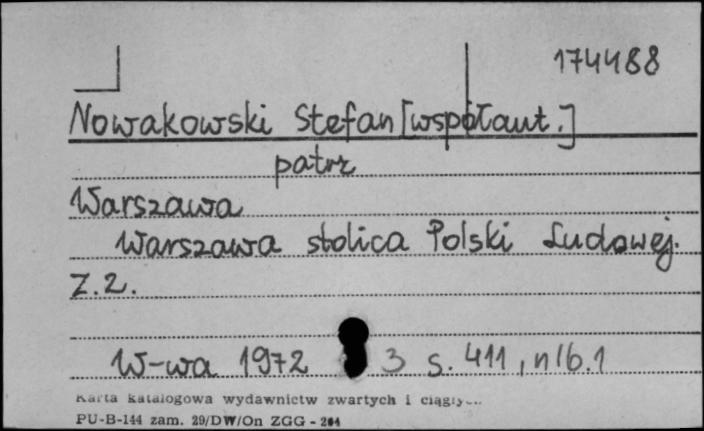 174488
Nowakowski Stefan [współaut.]
patrz
Warszawa
Warszawa stolica Polski Ludowej.
Z.2.
W-wa 1972 3 s. 411, nlb. 1
Karta katalogowa wydawnictw zwartych i
PU-B-144 zam. 29/DW/On ZGG - 204